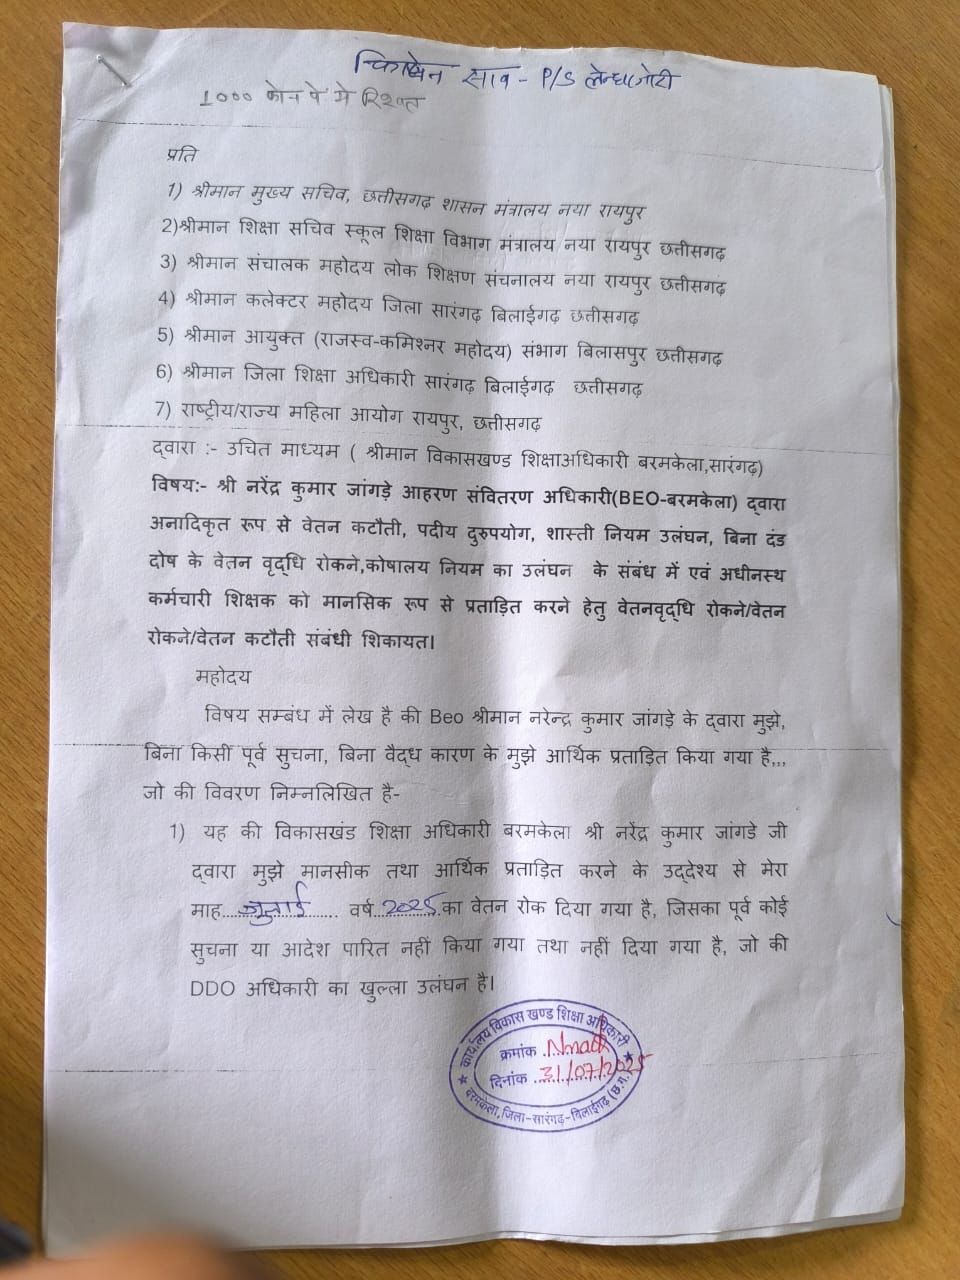 किशेन साव - P/S लेन्धाजोरी
1000 फोन पे मे रिश्वत
प्रति
1) श्रीमान मुख्य सचिव, छत्तीसगढ़ शासन मंत्रालय नया रायपुर
2)श्रीमान शिक्षा सचिव स्कूल शिक्षा विभाग मंत्रालय नया रायपुर छत्तीसगढ़
3) श्रीमान संचालक महोदय लोक शिक्षण संचनालय नया रायपुर छत्तीसगढ़
4) श्रीमान कलेक्टर महोदय जिला सारंगढ़ बिलाईगढ़ छत्तीसगढ़
5) श्रीमान आयुक्त (राजस्व-कमिश्नर महोदय) संभाग बिलासपुर छत्तीसगढ़
6) श्रीमान जिला शिक्षा अधिकारी सारंगढ़ बिलाईगढ़ छत्तीसगढ़
7) राष्ट्रीय/राज्य महिला आयोग रायपुर, छत्तीसगढ़
द्वारा :- उचित माध्यम ( श्रीमान विकासखण्ड शिक्षाअधिकारी बरमकेला,सारंगढ़)
विषय:- श्री नरेंद्र कुमार जांगड़े आहरण संवितरण अधिकारी(BEO-बरमकेला) द्वारा
अनादिकृत रूप से वेतन कटौती, पदीय दुरुपयोग, शास्ती नियम उलंघन, बिना दंड
दोष के वेतन वृद्धि रोकने,कोषालय नियम का उलंघन के संबंध में एवं अधीनस्थ
कर्मचारी शिक्षक को मानसिक रूप से प्रताड़ित करने हेतु वेतनवृद्धि रोकने/वेतन
रोकने/वेतन कटौती संबंधी शिकायत।
महोदय
विषय सम्बंध में लेख है की Beo श्रीमान नरेन्द्र कुमार जांगड़े के द्वारा मुझे,
बिना किसी पूर्व सुचना, बिना वैद्ध कारण के मुझे आर्थिक प्रताड़ित किया गया है,,,
जो की विवरण निम्नलिखित है-
1) यह की विकासखंड शिक्षा अधिकारी बरमकेला श्री नरेंद्र कुमार जांगड़े जी
द्वारा मुझे मानसीक तथा आर्थिक प्रताड़ित करने के उद्देश्य से मेरा
माह....जुलाई.... वर्ष 2025.का वेतन रोक दिया गया है, जिसका पूर्व कोई
सुचना या आदेश पारित नहीं किया गया तथा नहीं दिया गया है, जो की
DDO अधिकारी का खुल्ला उलंघन है।
कार्यालय विकास खण्ड शिक्षा अधिकारी
क्रमांक
दिनांक 31/07/2025
बरमकेला, जिला-सारंगढ़-बिलाईगढ़ (छ.ग.)